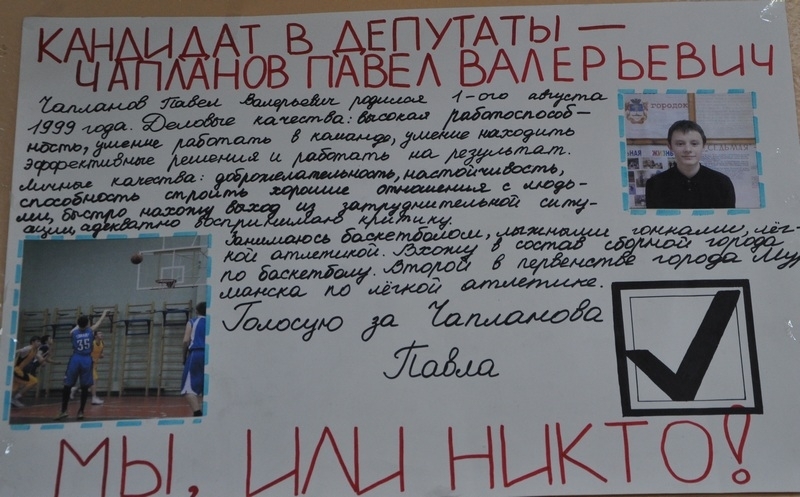 КАНДИДАТ В ДЕПУТАТЫ —
ЧАПЛАНОВ ПАВЕЛ ВАЛЕРЬЕВИЧ
Чапланов Павел Валерьевич родился 1-ого августа
1999 года. Деловые качества: высокая работоспособ-
ность, умение работать в команде, умение находить
эффективные решения и работать на результат.
Личные качества: доброжелательность, настойчивость,
способность строить хорошие отношения с людь-
ми, быстро нахожу выход из затруднительной ситу-
ации, адекватно воспринимаю критику.
Занимаюсь баскетболом, лыжными гонками, лёг-
кой атлетикой. Вхожу в состав сборной города
по баскетболу. Второй в первенстве города Мур
манска по лёгкой атлетике.
городок
35
Голосую за Чапланова
Павла
МЫ, ИЛИ НИКТО!